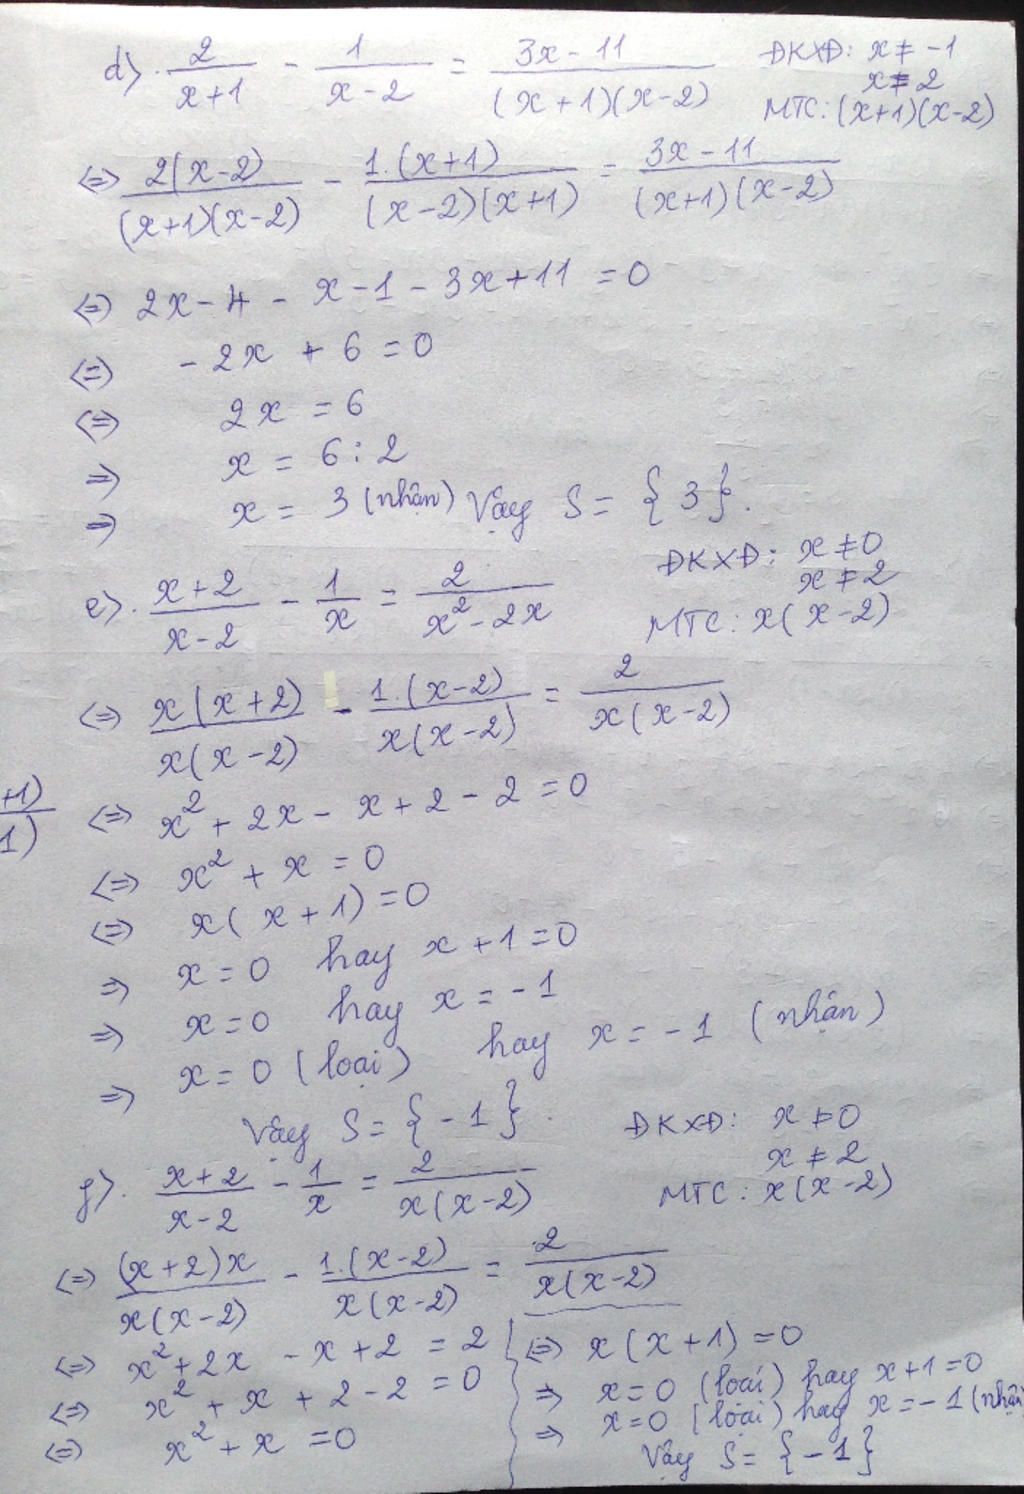 d) 2/(x+1) - 1/(x-2) = (3x-11)/((x+1)(x-2)) ĐKXĐ: x ≠ -1
x ≠ 2
MTC: (x+1)(x-2)
<=> 2(x-2)/((x+1)(x-2)) - 1.(x+1)/((x-2)(x+1)) = (3x-11)/((x+1)(x-2))
<=> 2x-4 - x-1 - 3x+11 = 0
<=> -2x + 6 = 0
<=> 2x = 6
=> x = 6:2
=> x = 3 (nhận) Vậy S = {3}.
e). (x+2)/(x-2) - 1/x = 2/(x²-2x) ĐKXĐ: x ≠ 0
x ≠ 2
MTC: x(x-2)
<=> x(x+2)/(x(x-2)) - 1.(x-2)/(x(x-2)) = 2/(x(x-2))
+1)
1)
<=> x² + 2x - x + 2 - 2 = 0
<=> x² + x = 0
<=> x(x+1) = 0
=> x = 0 hay x + 1 = 0
=> x = 0 hay x = -1
=> x = 0 (loại) hay x = -1 (nhận)
Vậy S = {-1}.
g). (x+2)/(x-2) - 1/x = 2/(x(x-2)) ĐKXĐ: x ≠ 0
x ≠ 2
MTC: x(x-2)
<=> (x+2)x/(x(x-2)) - 1.(x-2)/(x(x-2)) = 2/(x(x-2))
<=> x² + 2x - x + 2 = 2
<=> x² + x + 2 - 2 = 0
<=> x² + x = 0
<=> x(x+1) = 0
=> x = 0 (loại) hay x+1 = 0
=> x = 0 (loại) hay x = -1 (nhận
Vậy S = {-1}